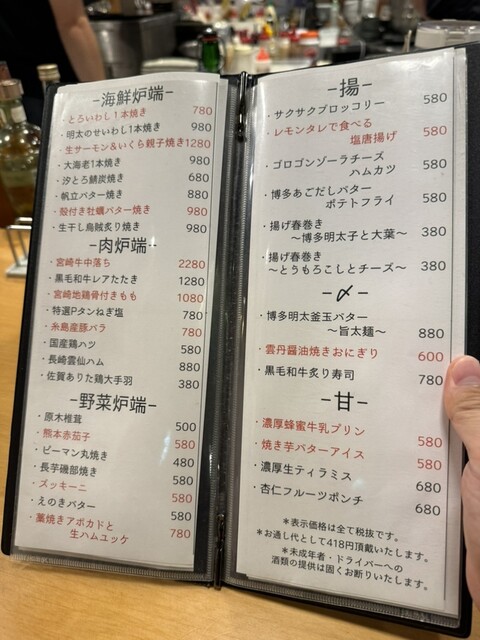 -海鮮炉端-
・とろいわし1本焼き 780
・明太のせいわし1本焼き 980
・生サーモン&いくら親子焼き1280
・大海老1本焼き 980
・汐とろ鯖炭焼き 680
・帆立バター焼き 880
・殻付き牡蠣バター焼き 980
・生干し烏賊炙り焼き 980
-肉炉端-
・宮崎牛中落ち 2280
・黒毛和牛レアたたき 1280
・宮崎地鶏骨付きもも 1080
・特選Pタンねぎ塩 780
・糸島産豚バラ 780
・国産鶏ハツ 580
・長崎雲仙ハム 880
・佐賀ありた鶏大手羽 380
-野菜炉端-
・原木椎茸 500
・熊本赤茄子 580
・ピーマン丸焼き 480
・長芋磯部焼き 580
・ズッキーニ 580
・えのきバター 580
・藁焼きアボカドと
生ハムユッケ 780
-揚-
・サクサクブロッコリー 580
・レモンタレで食べる
塩唐揚げ 580
・ゴロゴンゾーラチーズ
ハムカツ 580
・博多あごだしバター
ポテトフライ 580
・揚げ春巻き
〜博多明太子と大葉〜 380
・揚げ春巻き
〜とうもろこしとチーズ〜 380
-〆-
・博多明太釜玉バター
〜旨太麺〜 880
・雲丹醤油焼きおにぎり 600
・黒毛和牛炙り寿司 780
-甘-
・濃厚蜂蜜牛乳プリン 580
・焼き芋バターアイス 580
・濃厚生ティラミス 680
・杏仁フルーツポンチ 680
*表示価格は全て税抜です。
*お通し代として418円頂戴いたします。
*未成年者・ドライバーへの
酒類の提供は固くお断りいたします。